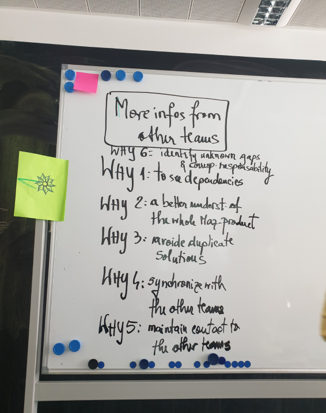 More infos from
other teams
WHY 6: identify unknown gaps
& responsability
WHY 1: to see dependencies
WHY 2: a better underst. of
the whole Map-product
WHY 3: avoide duplicate
solutions
WHY 4: synchronize with
the other teams
WHY 5: maintain contact to
the other teams